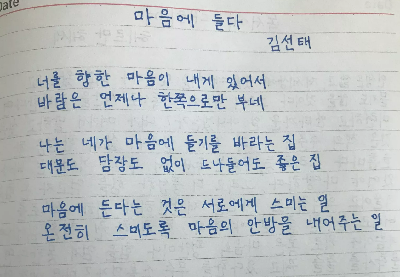 Date
마음에 들다
김선태
너를 향한 마음이 내게 있어서
바람은 언제나 한쪽으로만 부네
나는 네가 마음에 들기를 바라는 집
대문도 담장도 없이 드나들어도 좋은 집
마음에 든다는 것은 서로에게 스미는 일
온전히 스미도록 마음의 안방을 내어주는 일